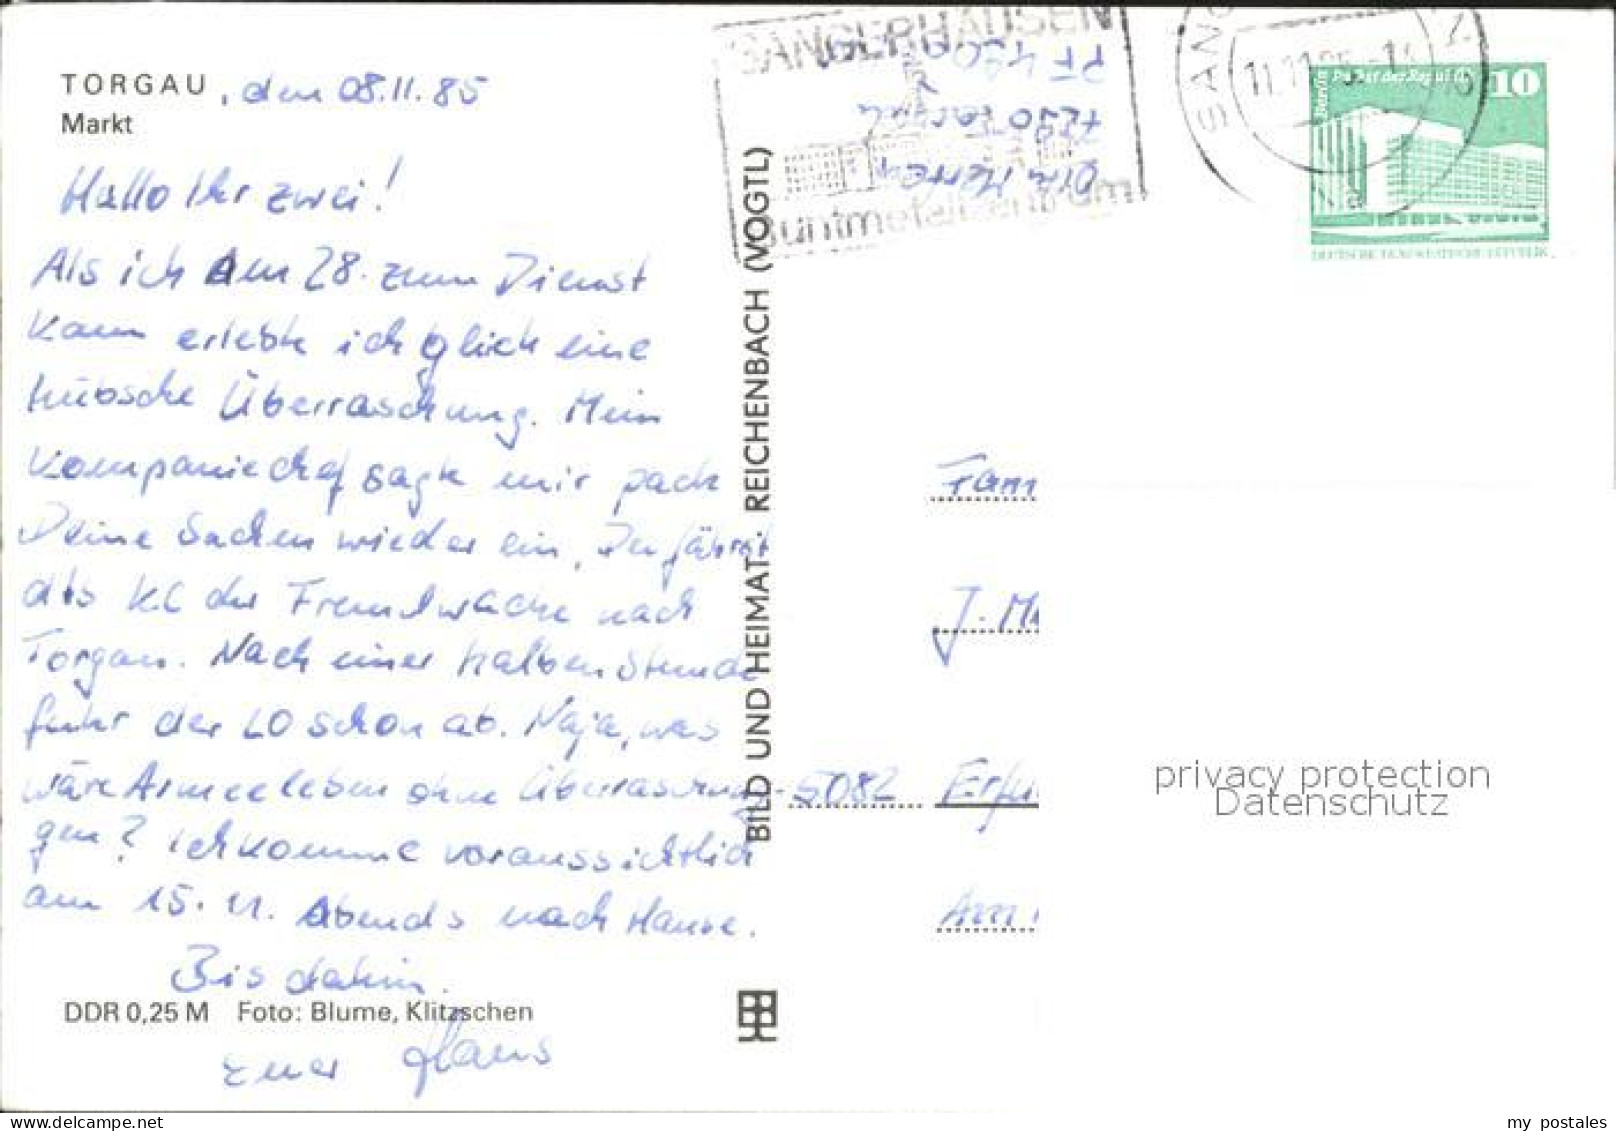 TORGAU, den 08.11.85
Markt
Hallo Ihr zwei!
Als ich am 28. zum Dienst
kam erlebte ich gleich eine
hübsche Überraschung. Mein
Kompaniechef sagte mir pack
Deine Sachen wieder ein, Du fährst
als KC der Fremdwache nach
Torgau. Nach einer halben Stunde
fuhr der LO schon ab. Naja, was
wäre Armeeleben ohne Überraschun-
gen? Ich komme voraussichtlich
am 15.11. Abends nach Hause.
Bis dahin.
DDR 0,25 M Foto: Blume, Klitzschen
Euer Hans
BILD UND HEIMAT REICHENBACH (VOGTL)
SANGERHAUSEN
Buntmetallzentrum
PF
7290 Torgau
SANG
11.11.85
Berlin Palast der Republik
10
DEUTSCHE DEMOKRATISCHE REPUBLIK
Fam
J. M
5082 Erfu
Am
privacy protection
Datenschutz
my postales